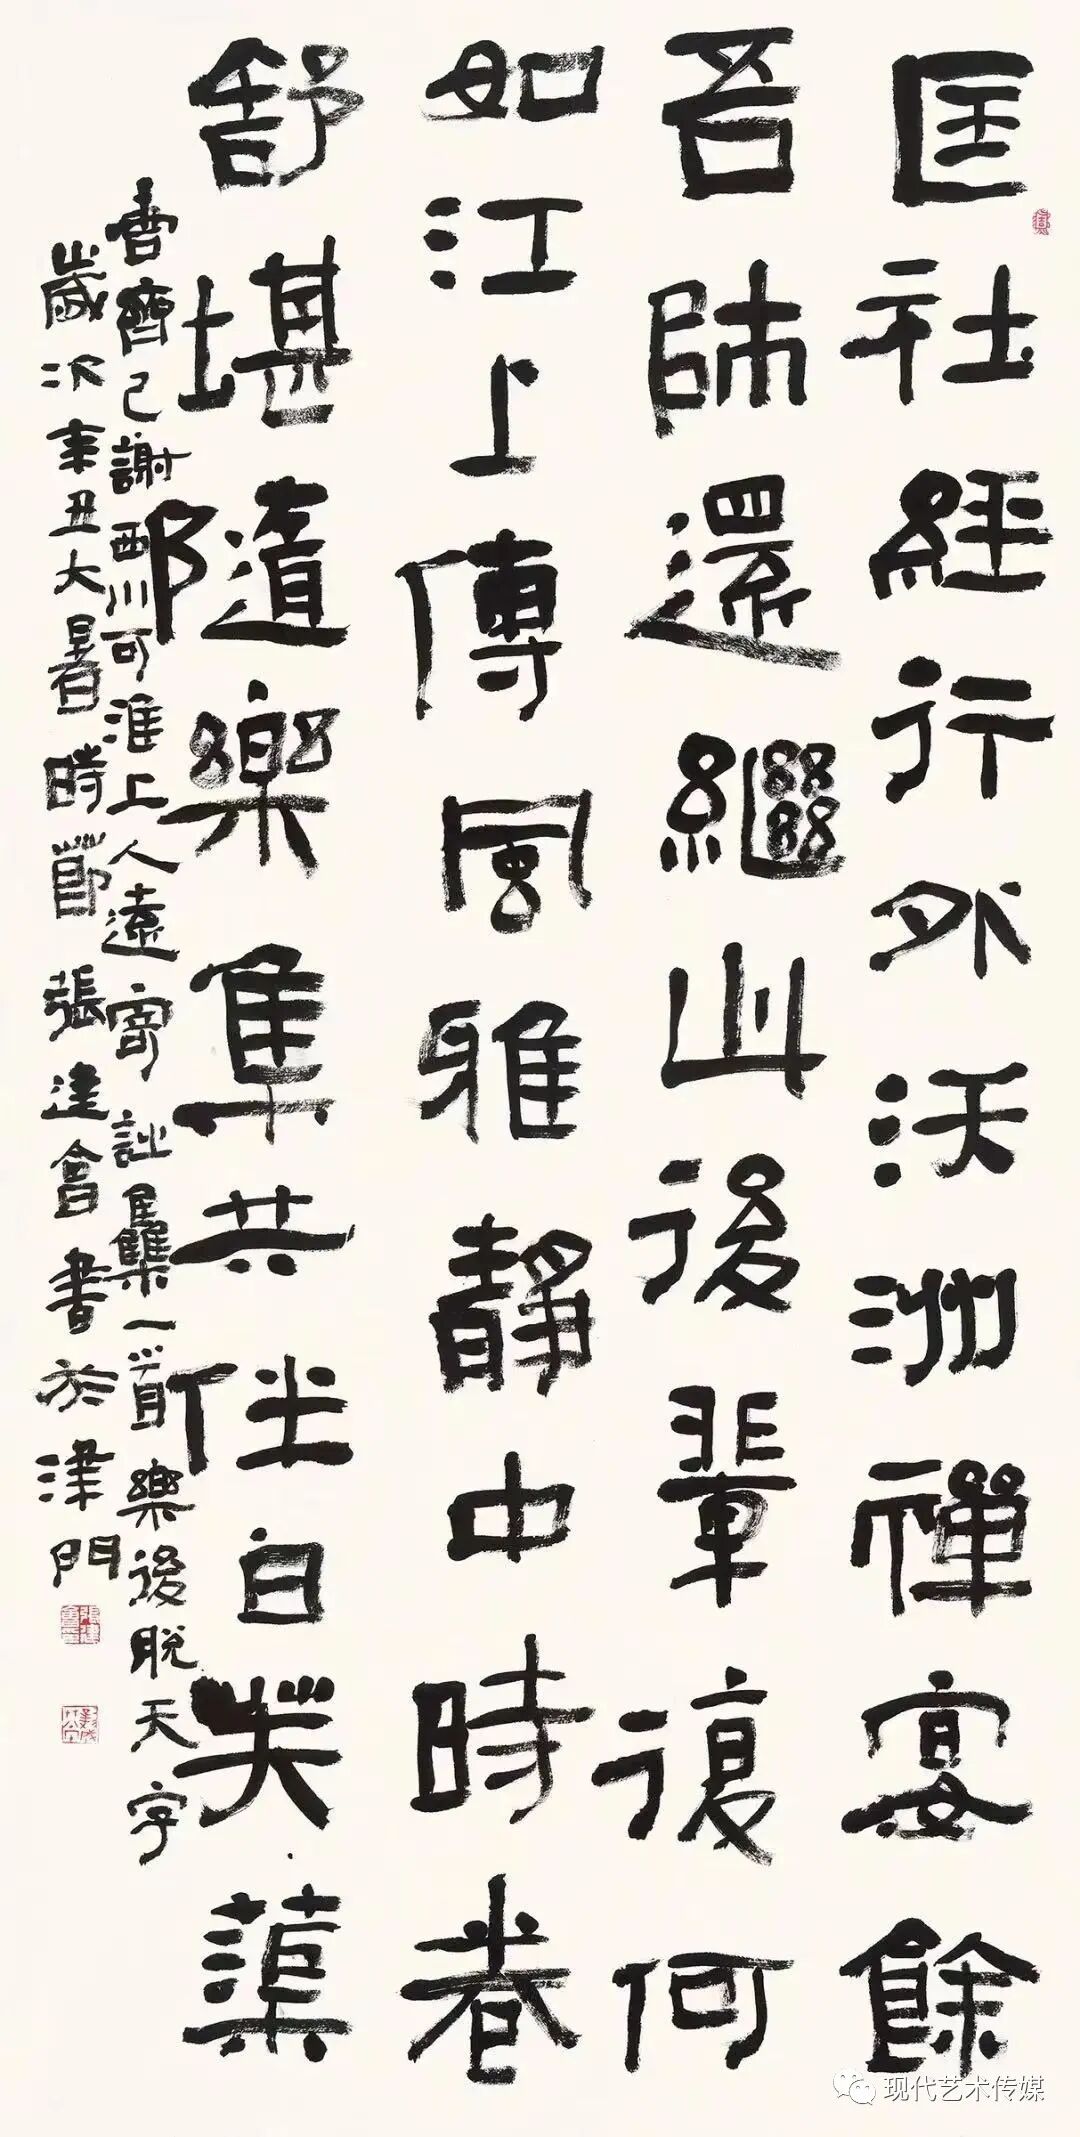 匡社經行外沃洲禪宴餘
吾師還繼此後輩復何
如江上傳風雅靜中時卷
舒堪隨樂集共伴白芙蕖
唐齊己謝西川可准上人遠寄詩集一首樂後脫天字
歲次辛丑大暑時節張建會書於津門
现代艺术传媒